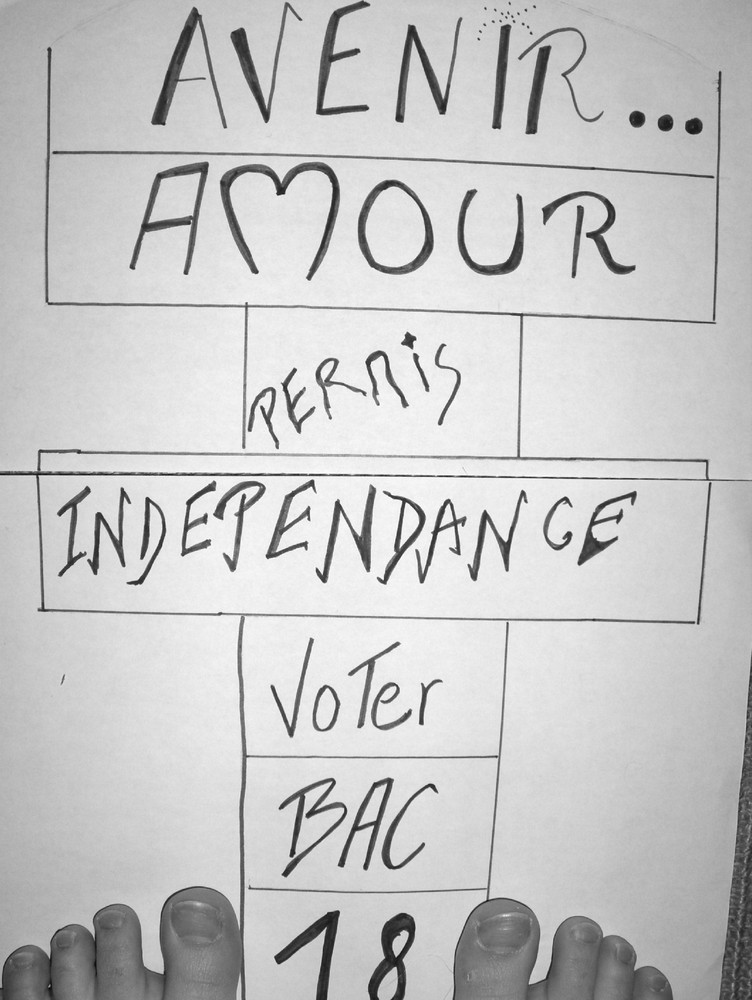 AVENIR...
AMOUR
PERMiS
INDEPENDANCE
VoTer
BAC
18